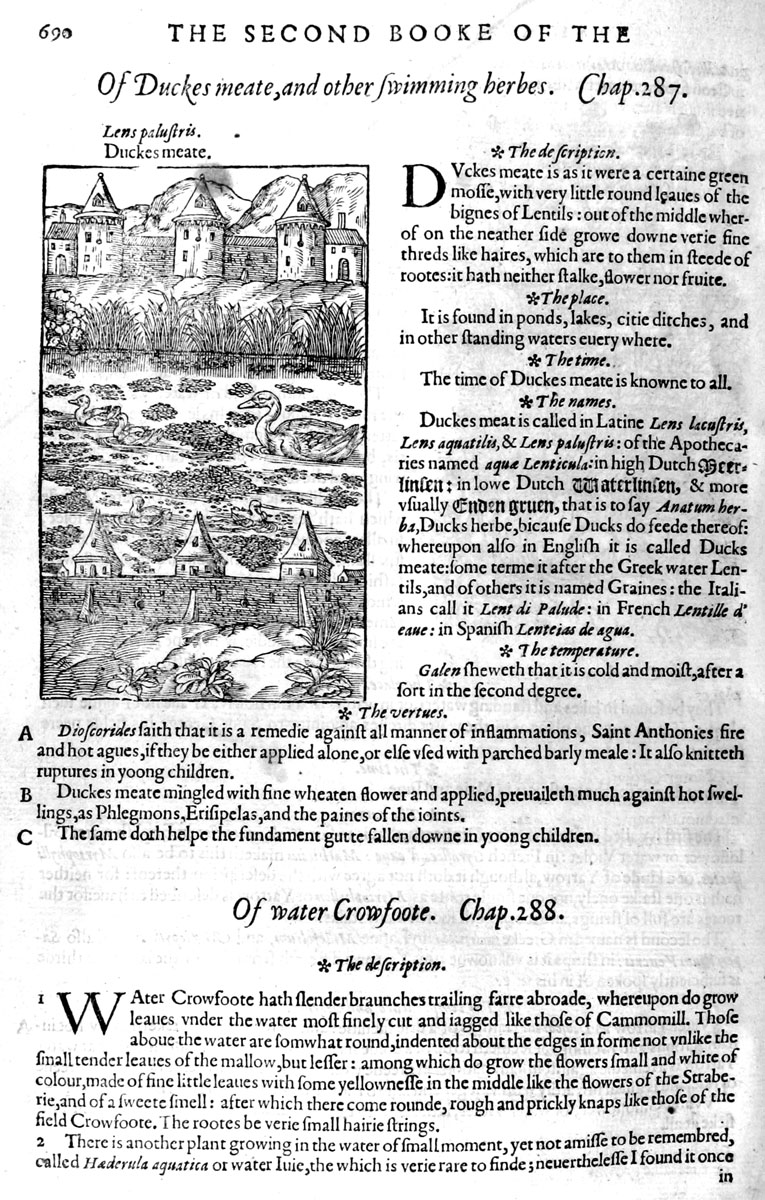 690 THE SECOND BOOKE OF THE
Of Duckes meate, and other ſwimming herbes. Chap. 287.
Lens paluſtris.
Duckes meate.
✻ The deſcription.
DVckes meate is as it were a certaine green
moſſe, with very little round leaues of the
bignes of Lentils : out of the middle wher-
of on the neather ſide growe downe verie fine
threds like haires, which are to them in ſteede of
rootes: it hath neither ſtalke, flower nor fruite.
✻ The place.
It is found in ponds, lakes, citie ditches, and
in other ſtanding waters euery where.
✻ The time.
The time of Duckes meate is knowne to all.
✻ The names.
Duckes meat is called in Latine Lens lacuſtris,
Lens aquatilis, & Lens paluſtris : of the Apotheca-
ries named aquæ Lenticula: in high Dutch Meer-
linſen: in lowe Dutch Waterlinſen, & more
vſually Enden gruen, that is to ſay Anatum her-
ba, Ducks herbe, bicauſe Ducks do feede thereof:
whereupon alſo in Engliſh it is called Ducks
meate: ſome terme it after the Greek water Len-
tils, and of others it is named Graines : the Itali-
ans call it Lent di Palude : in French Lentille d'
eaue : in Spaniſh Lenteias de agua.
✻ The temperature.
Galen ſheweth that it is cold and moiſt, after a
ſort in the ſecond degree.
✻ The vertues.
A Dioſcorides ſaith that it is a remedie againſt all manner of inflammations, Saint Anthonies fire
and hot agues, if they be either applied alone, or elſe vſed with parched barly meale : It alſo knitteth
ruptures in yoong children.
B Duckes meate mingled with fine wheaten flower and applied, preuaileth much againſt hot ſwel-
lings, as Phlegmons, Eriſipelas, and the paines of the ioints.
C The ſame doth helpe the fundament gutte fallen downe in yoong children.
Of water Crowfoote. Chap. 288.
✻ The deſcription.
1 WAter Crowfoote hath ſlender braunches trailing farre abroade, whereupon do grow
leaues vnder the water moſt finely cut and iagged like thoſe of Cammomill. Thoſe
aboue the water are ſomwhat round, indented about the edges in forme not vnlike the
ſmall tender leaues of the mallow, but leſſer : among which do grow the flowers ſmall and white of
colour, made of fine little leaues with ſome yellowneſſe in the middle like the flowers of the Strabe-
rie, and of a ſweete ſmell : after which there come rounde, rough and prickly knaps like thoſe of the
field Crowfoote. The rootes be verie ſmall hairie ſtrings.
2 There is another plant growing in the water of ſmall moment, yet not amiſſe to be remembred,
called Hæderula aquatica or water Iuie, the which is verie rare to finde ; neuertheleſſe I found it once
in